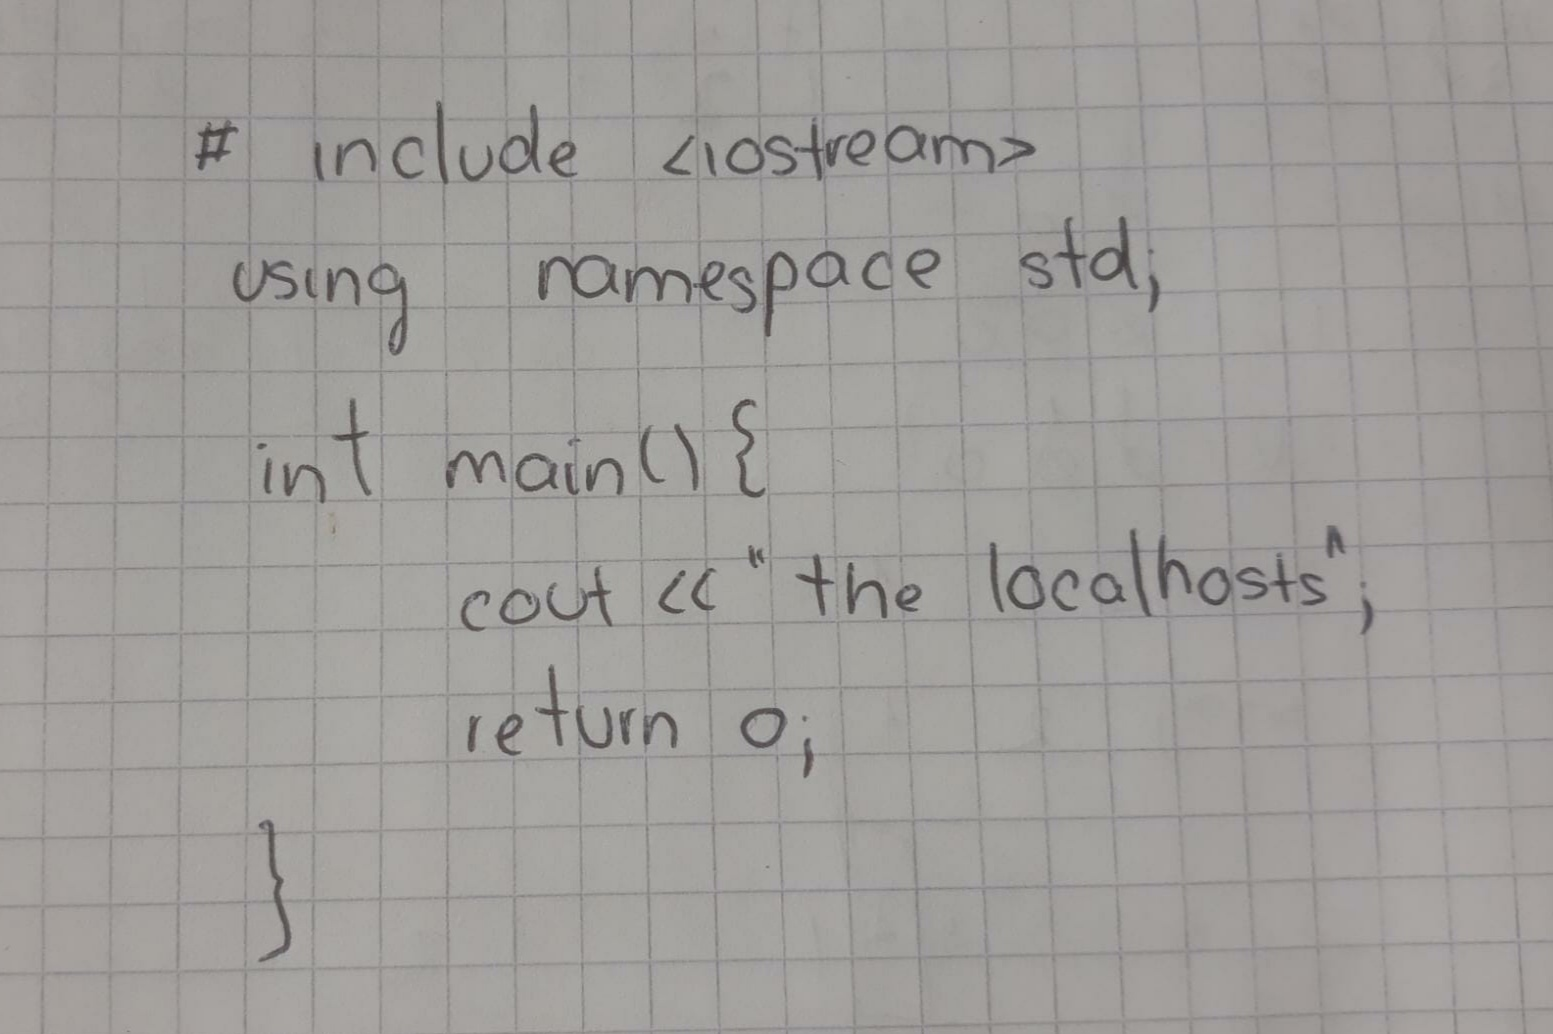 # include <iostream>
using namespace std;
int main() {
cout << "the localhosts";
return 0;
}